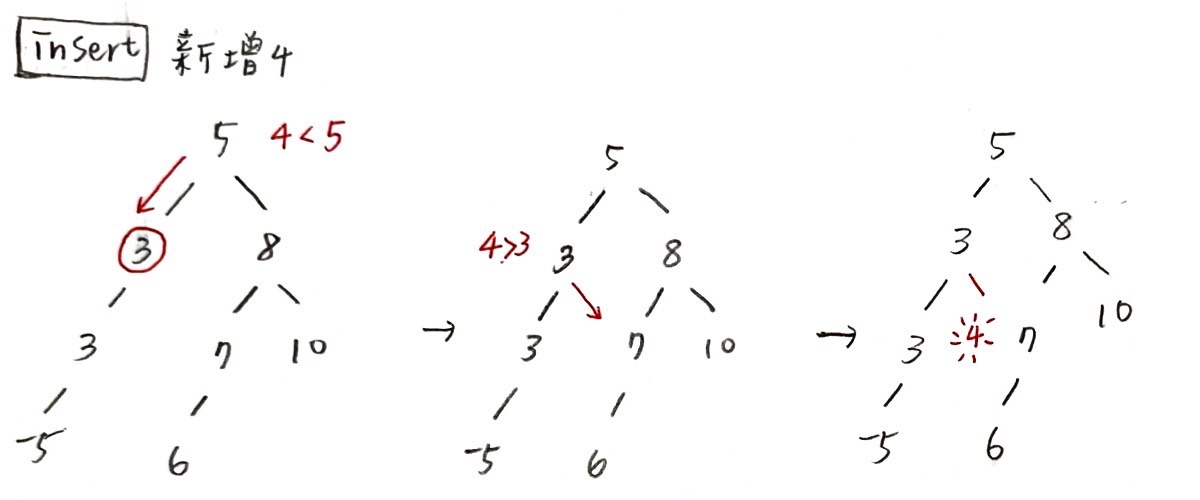 insert 新增4
5 4<5
3 8
3 7 10
-5 6
→
5
4>3 3 8
3 7 10
-5 6
→
5
3 8
3 4 7 10
-5 6